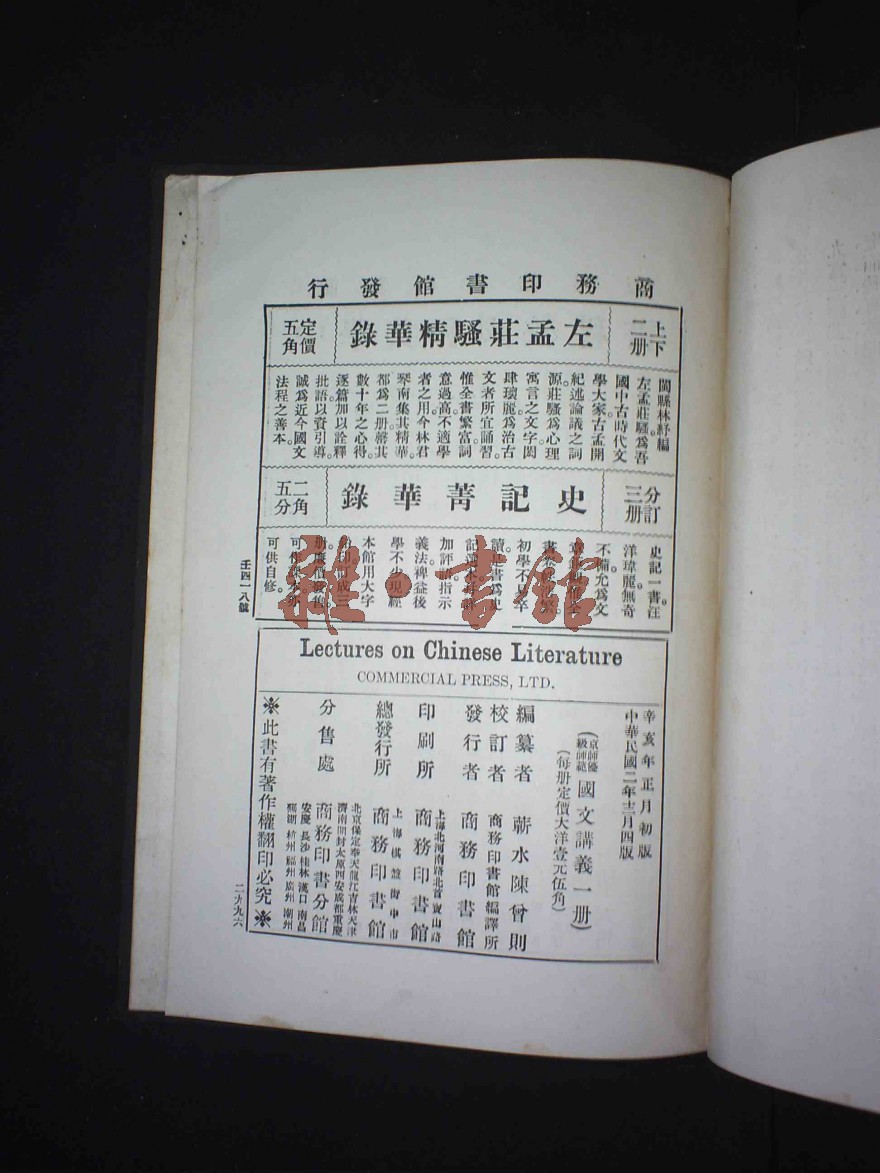 商務印書館發行
上下二册
左孟莊騷精華錄
定價五角
閩縣林紓編
左孟莊騷爲吾
國中古時代文
學大家古孟開
紀述論議之詞
源莊騷爲心理
寓言之文字閎
肆瓌麗爲治古
文者所宜誦習
惟全書繁富詞
意過高不適學
者之用今林君
琴南集其精華
都爲二册罄其
數十年之心得
逐篇加以詮釋
批語以資引導
誠爲近今國文
法程之善本。
分訂三册
史記菁華錄
二角五分
史記一書。汪
洋瑋麗無奇
不備尤爲文
初學不
讀是書爲史
加評指示
義法裨益後
學不少現經
本館用大字
可供自修。
壬四一八號
雜·書館
Lectures on Chinese Literature
COMMERCIAL PRESS, LTD.
辛亥年正月初版
中華民國二年十二月四版
(京師優級師範)國文講義一册
(每册定價大洋壹元伍角)
編纂者 蘄水陳曾則
校訂者 商務印書館編譯所
發行者 商務印書館
上海北河南路北首寶山路
印刷所 商務印書館
上海棋盤街中市
總發行所 商務印書館
北京保定奉天龍江吉林天津
濟南開封太原西安成都重慶
分售處 商務印書分館
安慶長沙桂林漢口南昌
蕪湖杭州福州廣州潮州
※此書有著作權翻印必究※
二九九六